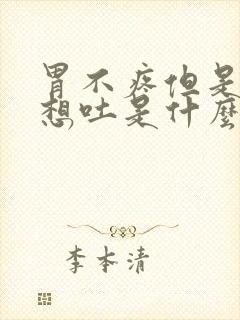 胃不疼但是
想吐是什麼
李本清